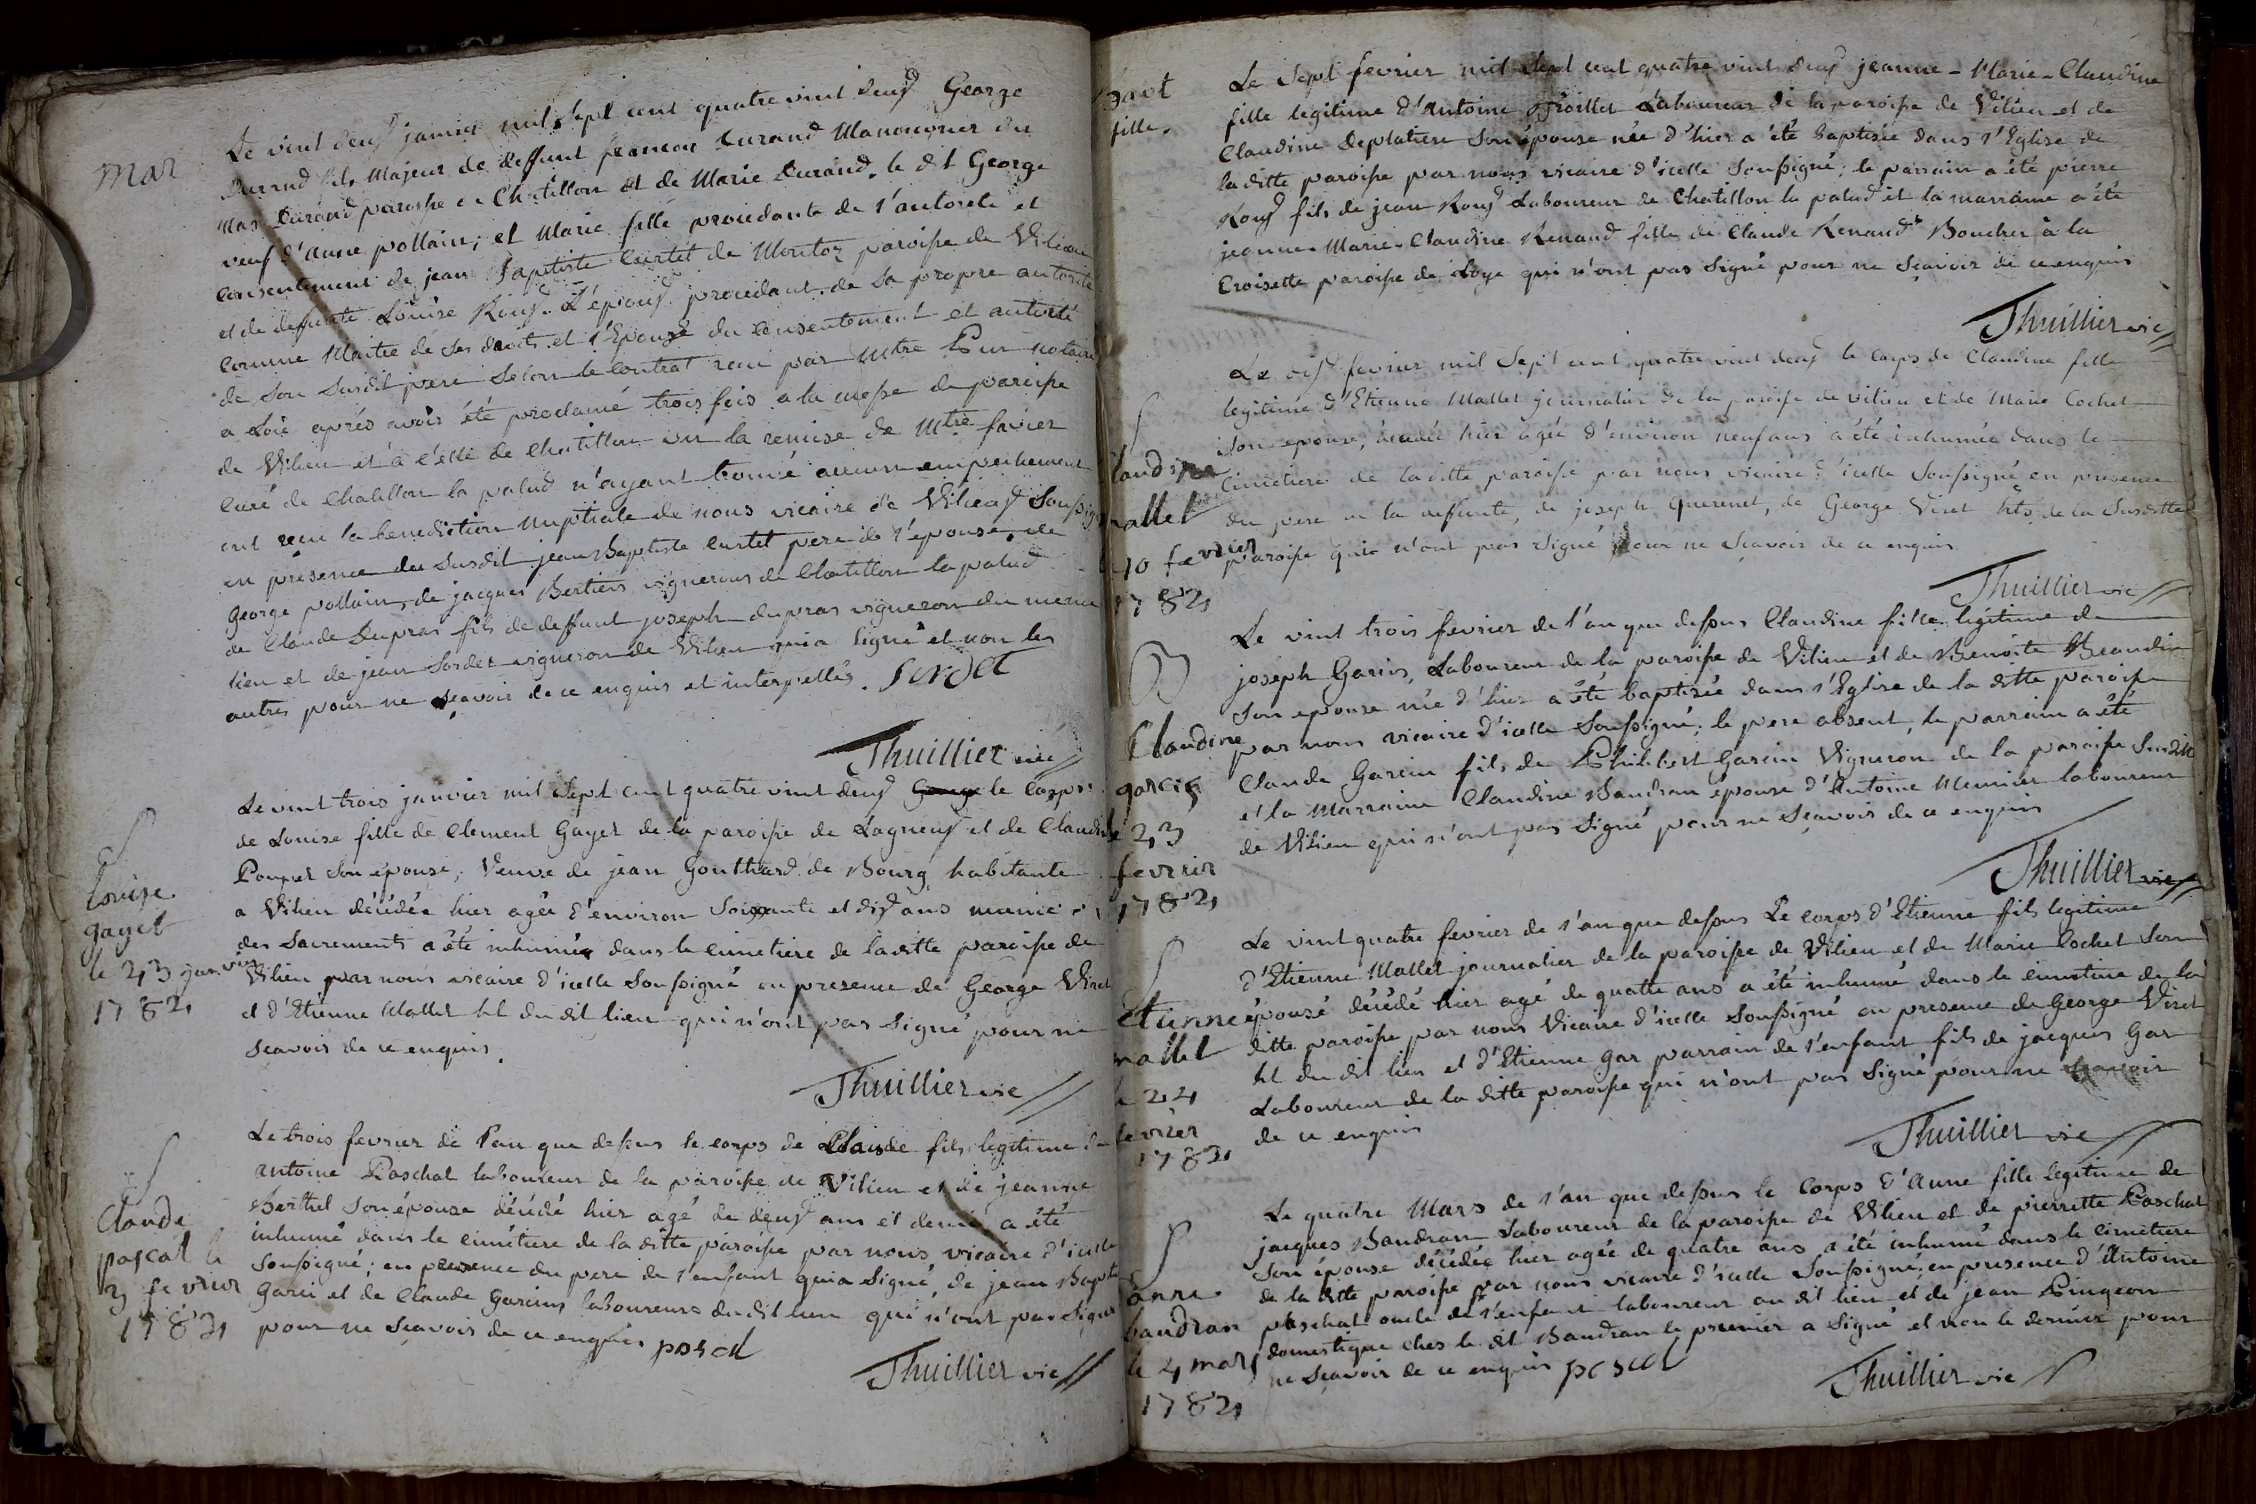 mar
Le vint deux janvier mil sept cent quatre vint deux George
Durand fils Majeur de deffunt francois Durand Manouvrier du
Mas Durand paroisse de Chatillon et de Marie Durand, le dt George
veuf d'anne pollain; et Marie fille procedante de l'autorité et
consentement de jean Baptiste Curtet de Montoz paroisse de Vilieu
et de deffunte Louise Roux. L'epoux procedant de sa propre autorité
comme Maitre de ses droits et l'Epouse du consentement et autorité
de son susdit pere selon le contrat recu par Mtre notaire
a Loie aprés avoir été proclamé trois fois a la messe de paroisse
de Vilieu et à celle de Chatillon vu la remise de Mtre favier
curé de Chatillon la palud n'ayant trouvé aucun empechement
ont recu la benediction nuptiale de nous vicaire de Vilieux soussigné
en présence du susdit jean Baptiste Curtet pere de l'épouse, de
George pollain, de jacques Bertier, vignerons de Chatillon la palud
de Claude Dupras fils de deffunt joseph dupras vigneron du meme
lieu et de jean Sordet vigneron de Vilieu qui a signé et non les
autres pour ne sçavoir de ce enquis et interpellés. Sordet
Thuillier vic
S
Louise
gayet
le 23 janvier
1782
Le vint trois janvier mil sept cent quatre vint deux George le corps
de Louise fille de Clement Gayet de la paroisse de Lagneux et de Claudine
Poupet son épouse, Veuve de jean Gouthard de Bourg habitante
a Vilieu décédée hier agée d'environ soixante et dix ans munie
des Sacrements a été inhumée dans le cimetiere de la ditte paroisse de
Vilieu par nous vicaire d'icelle soussigné en presence de George Viret
et d'Etienne Mallet ht du dit lieu qui n'ont pas signé pour ne
sçavoir de ce enquis.
Thuillier vic
S
Claude
pascal le
3 fevrier
1782
Le trois fevrier de l'an que dessus le corps de Claude fils legitime de
antoine Paschal laboureur de la paroisse de Vilieu et de jeanne
Berthet son épouse décédé hier agé de deux ans et demie a été
inhumé dans le cimetiere de la ditte paroisse par nous vicaire d'icelle
soussigné; en presence du pere de l'enfant qui a signé, de jean Bapte
Garin et de Claude Garin laboureurs du dit lieu qui n'ont pas signé
pour ne sçavoir de ce enquis pascal
Thuillier vic
fille.
Le sept fevrier mil sept cent quatre vint deux jeanne-Marie-Claudine
fille legitime d'antoine Troillet Laboureur de la paroisse de Vilieu et de
Claudine Deplatiere son épouse née d'hier a été baptisée dans l'Eglise de
la ditte paroisse par nous vicaire d'icelle soussigné; le parrain a été pierre
Roux fils de jean Roux Laboureur de Chatillon la palud et la marraine a été
jeanne-Marie-Claudine Renaud fille de Claude Renaud Boucher à la
Croisette paroisse de Loye qui n'ont pas signé pour ne sçavoir de ce enquis
Thuillier vic
S
Claudine
mallet
10 fevrier
1782
Le dix fevrier mil sept cent quatre vint deux le corps de Claudine fille
legitime d'Etienne Mallet journalier de la paroisse de vilieu et de Marie Cochet
son epouse, décédée hier agée d'environ neuf ans a été inhumée dans le
cimetiere de la ditte paroisse par nous vicaire d'icelle soussigné en presence
du pere de la deffunte, de joseph Querenet, de George Viret hts de la susditte
paroisse qui n'ont pas signé pour ne sçavoir de ce enquis
Thuillier vic
B
Claudine
garin
le 23
fevrier
1782
Le vint trois fevrier de l'an que dessus Claudine fille legitime de
joseph Garin, Laboureur de la paroisse de Vilieu et de Benoite Beaudin
son epouse née d'hier a été baptisée dans l'Eglise de la ditte paroisse
par nous vicaire d'icelle soussigné; le pere absent, le parrain a été
Claude Garin fils de Philibert Garin Vigneron de la paroisse susditte
et la marraine Claudine Baudran épouse d'Antoine Meunier laboureur
de Vilieu qui n'ont pas signé pour ne sçavoir de ce enquis
Thuillier vic
S
Etienne
mallet
le 24
fevrier
1782
Le vint quatre fevrier de l'an que dessus Le corps d'Etienne fils legitime
d'Etienne Mallet journalier de la paroisse de Vilieu et de Marie Cochet son
épouse décédé hier agé de quatre ans a été inhumé dans le cimetiere de la
ditte paroisse par nous Vicaire d'icelle soussigné en presence de George Viret
ht du dit lieu et d'Etienne Gar parrain de l'enfant fils de jacques Gar
Laboureur de la ditte paroisse qui n'ont pas signé pour ne sçavoir
de ce enquis
Thuillier vic
S
anne
baudran
le 4 mars
1782
Le quatre Mars de l'an que dessus le Corps d'Anne fille legitime de
jacques Baudran Laboureur de la paroisse de Vilieu et de pierrette Paschal
son épouse décédée hier agée de quatre ans a été inhumé dans le cimetiere
de la ditte paroisse par nous vicaire d'icelle soussigné; en presence d'Antoine
paschal oncle de l'enfant laboureur au dit lieu et de jean Pingeon
domestique ches le dit Baudran le premier a signé et non le dernier pour
ne sçavoir de ce enquis pascal
Thuillier vic